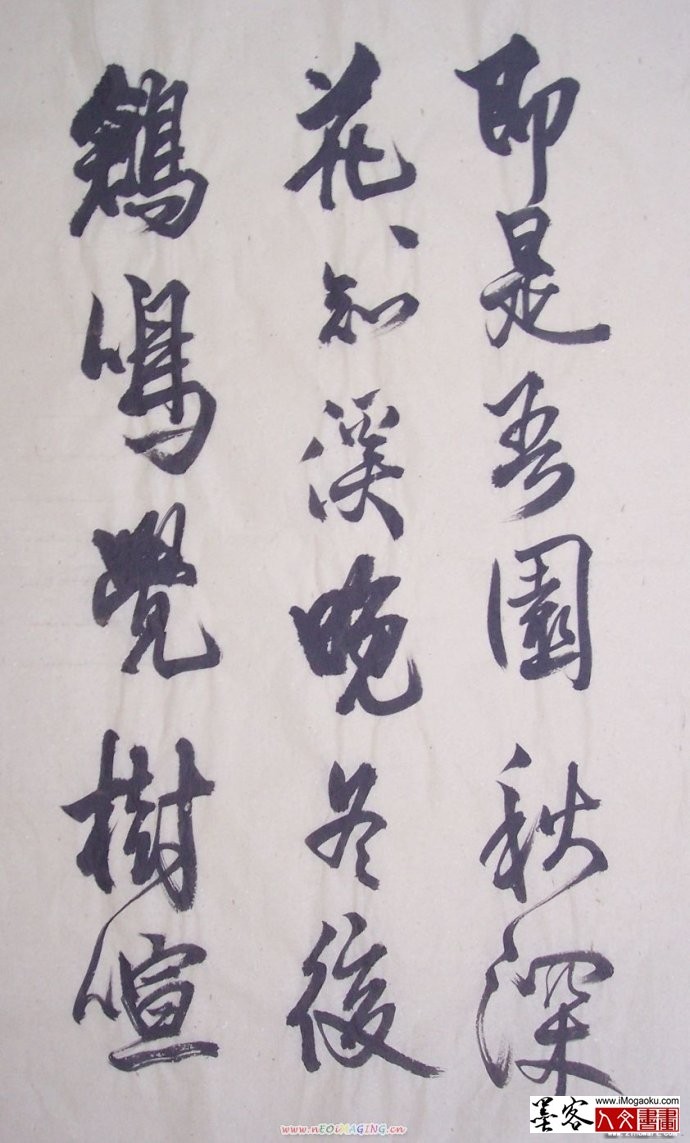 即是吾園秋深
花、知溪晚冬後
鶴鳴覺樹喧
墨客 www.iMogaoku.com
人文書畫
www.nEOiMAGING.cn